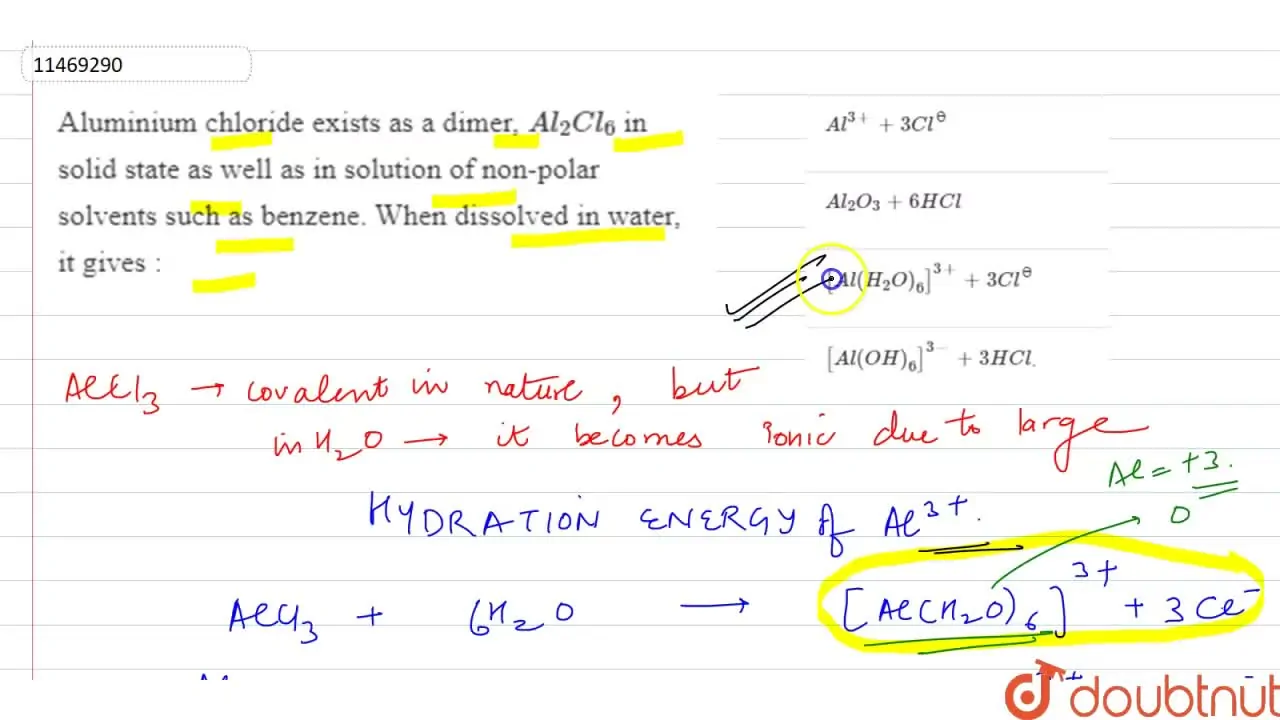 11469290
Aluminium chloride exists as a dimer, Al₂Cl₆ in
solid state as well as in solution of non-polar
solvents such as benzene. When dissolved in water,
it gives :
Al³⁺ + 3Cl^θ
Al₂O₃ + 6HCl
[Al(H₂O)₆]³⁺ + 3Cl^θ
[Al(OH)₆]³⁻ + 3HCl.
AlCl₃ → covalent in nature, but
in H₂O → it becomes ionic due to large
Al = +3.
HYDRATION ENERGY of Al³⁺.
0
AlCl₃ + 6H₂O → [Al(H₂O)₆]³⁺ + 3Cl⁻
doubtnut